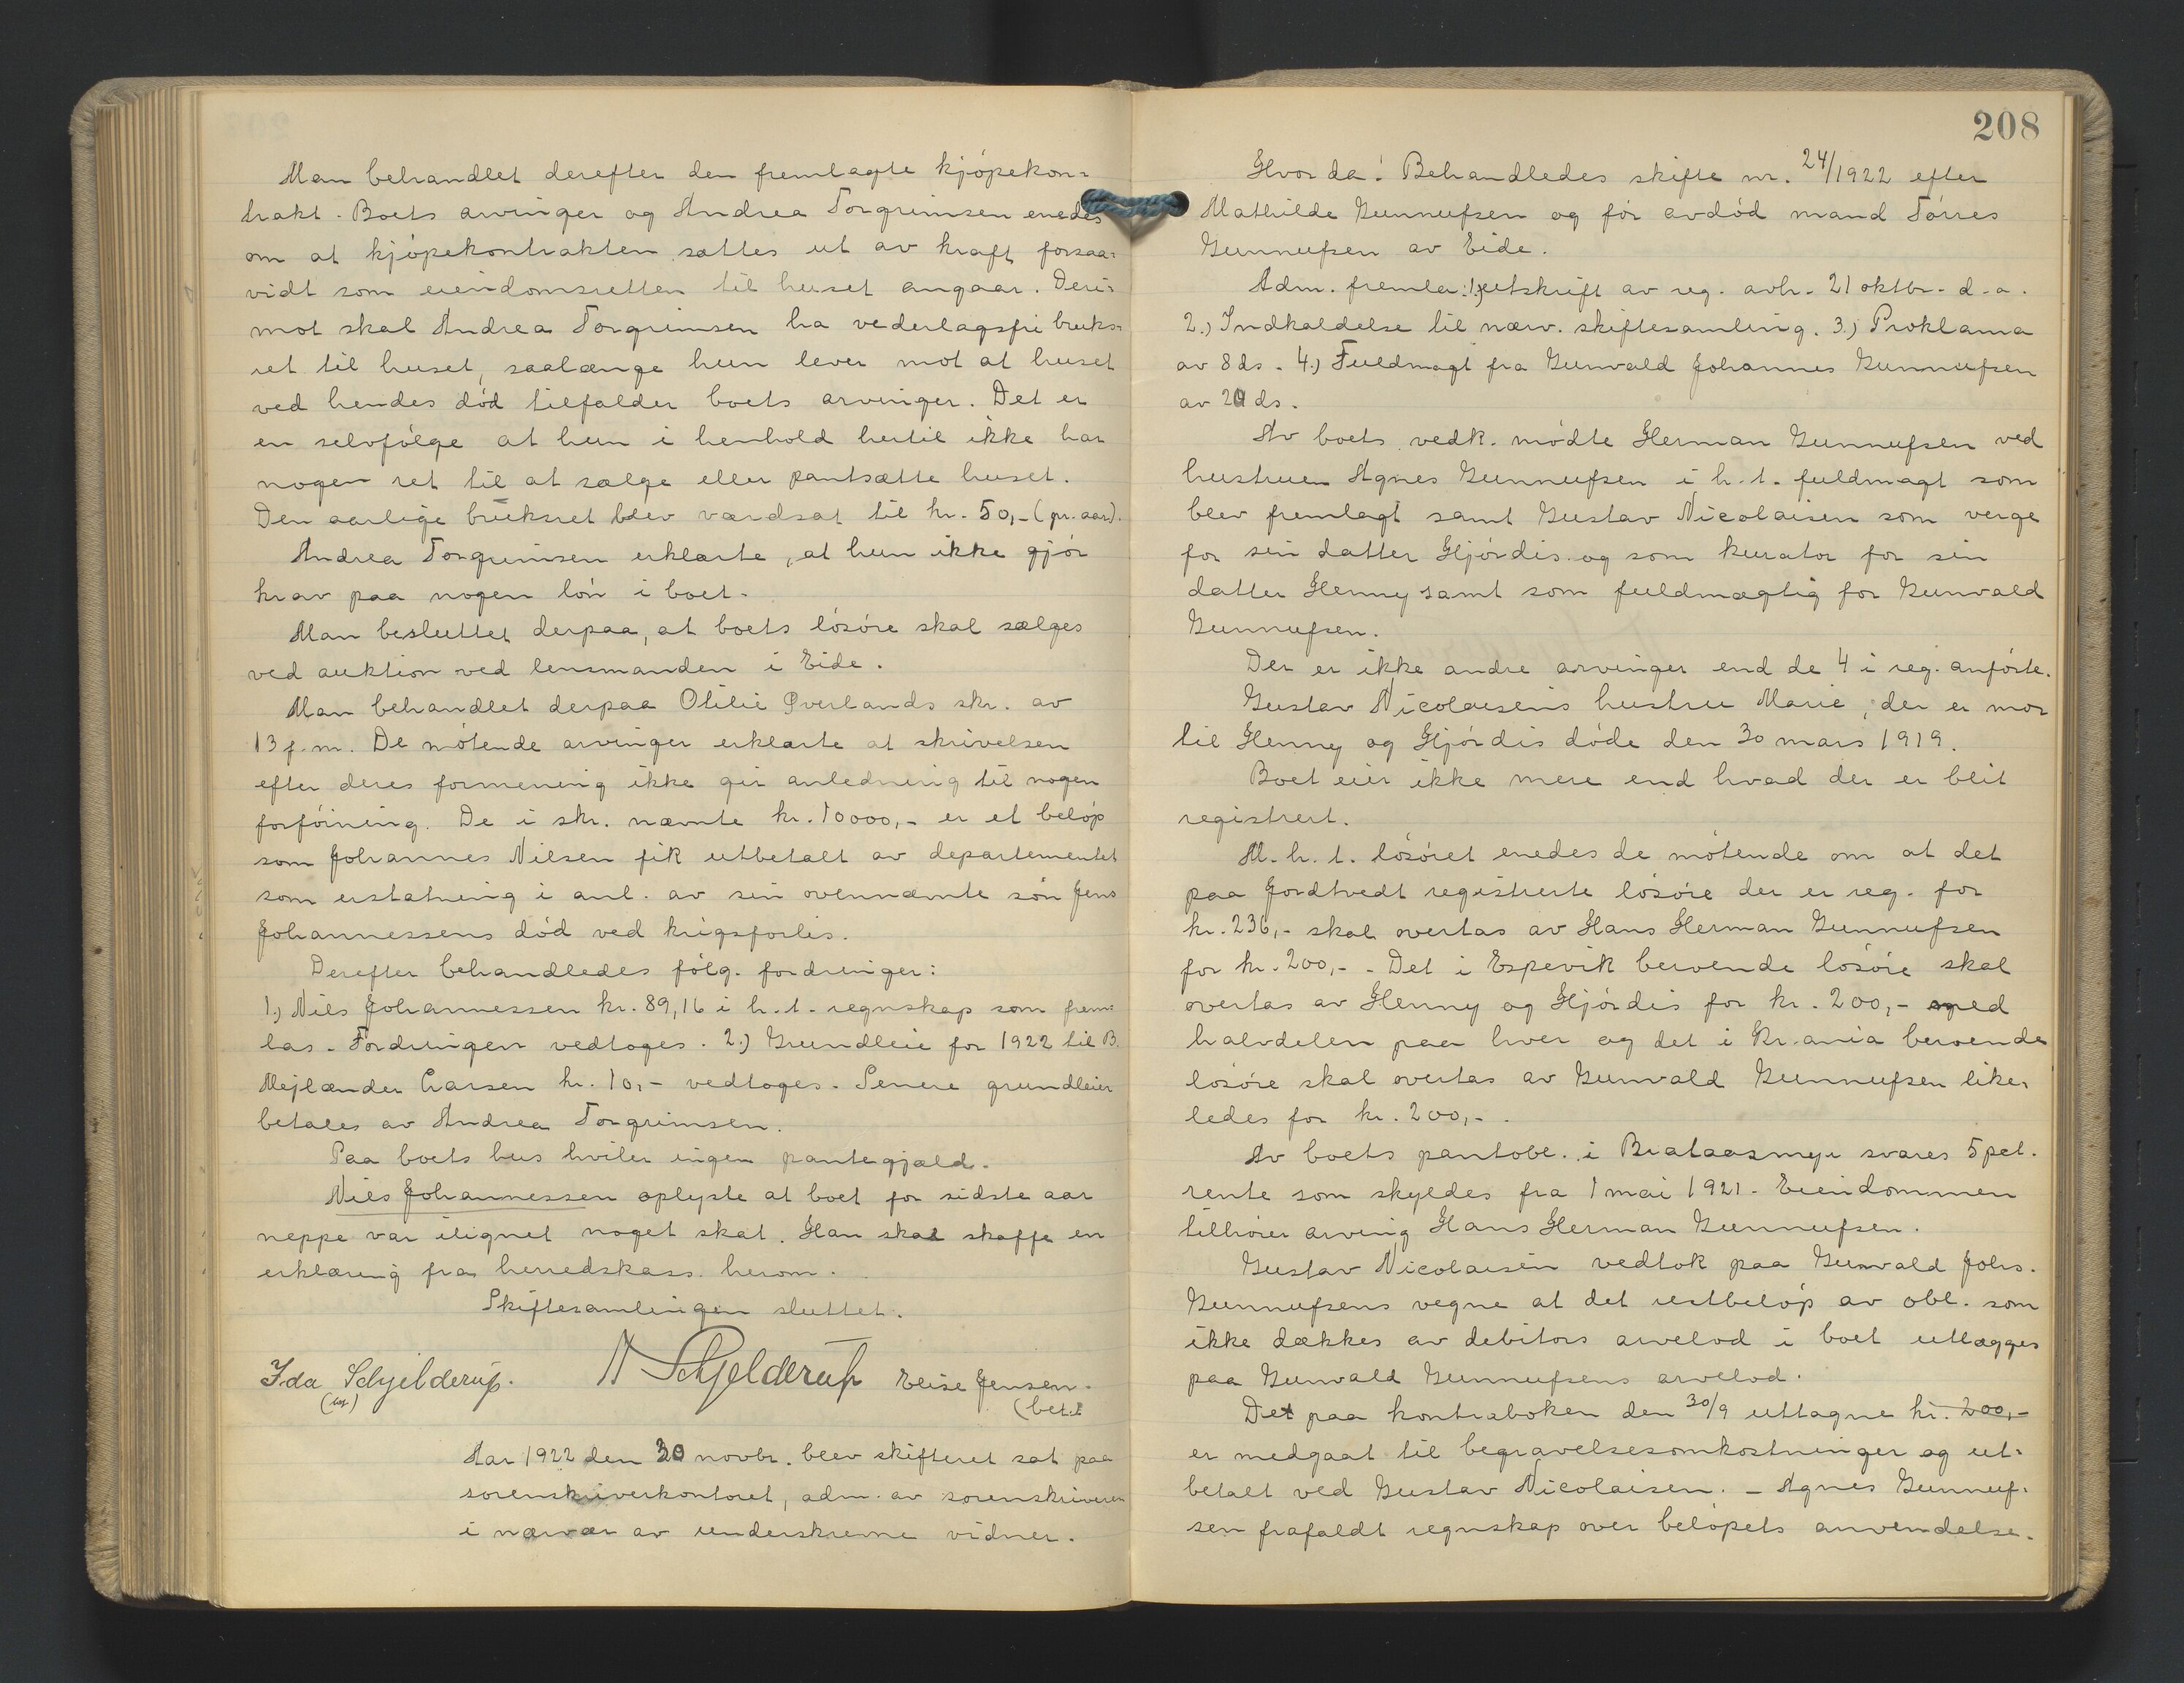 Man behandlet derefter den fremlagte kjøpekon=
trakt. Boets arvinger og Andrea Torgrimsen enedes
om at kjøpekontrakten sættes ut av kraft forsaa=
vidt som eiendomsretten til huset angaar. Deri=
mot skal Andrea Torgrimsen ha vederlagsfri bruks=
ret til huset, saalænge hun lever mot at huset
ved hendes død tilfalder boets arvinger. Det er
en selvfølge at hun i henhold hertil ikke har
nogen ret til at sælge eller pantsætte huset.
Den aarlige bruksret blev værdsat til kr. 50,- (pr. aar).
Andrea Torgrimsen erklærte, at hun ikke gjør
krav paa nogen løn i boet.
Man besluttet derpaa, at boets løsøre skal sælges
ved auktion ved lensmanden i Eide.
Man behandlet derpaa Otilie Øverlands skr. av
13 f.m. De møtende arvinger erklærte at skrivelsen
efter deres formening ikke gir anledning til nogen
forføining. De i skr. nævnte kr. 10000,- er et beløp
som Johannes Nilsen fik utbetalt av departementet
som erstatning i anl. av sin ovennævnte søn Jens
Johannessens død ved krigsforlis.
Derefter behandledes følg. fordringer:
1.) Nils Johannessen kr. 89,16 i h.t. regnskap som frem=
las. Fordringen vedtoges. 2.) Grundleie for 1922 til B.
Mejlænder Larsen kr. 10,- vedtoges. Senere grundleier
betales av Andrea Torgrimsen.
Paa boets hus hviler ingen pantegjæld.
Nils Johannessen oplyste at boet for sidste aar
neppe var ilignet noget skat. Han skal skaffe en
erklæring fra herredskass. herom.
Skiftesamlingen sluttet.
Ida Schjelderup. N Schjelderup Elise Jensen.
(bet.)
Aar 1922 den 30 novbr. blev skifteret sat paa
sorenskriverkontoret, adm. av sorenskriveren
i nærvær av underskrevne vidner.
208
Hvorda: Behandledes skifte nr. 24/1922 efter
Mathilde Gunnufsen og før avdød mand Tørres
Gunnufsen av Eide.
Adm. fremla: 1.) utskrift av reg. avh. 21 oktbr. d.a.
2.) Indkaldelse til nærv. skiftesamling. 3.) Proklama
av 8 ds. 4.) Fuldmagt fra Gunvald Johannes Gunnufsen
av ds.
Av boets vedk. mødte Herman Gunnufsen ved
hustruen Agnes Gunnufsen i h.t. fuldmagt som
blev fremlagt samt Gustav Nicolaisen som verge
for sin datter Hjørdis og som kurator for sin
datter Henny samt som fuldmægtig for Gunvald
Gunnufsen.
Der er ikke andre arvinger end de 4 i reg. anførte.
Gustav Nicolaisens hustru Marie, der er mor
til Henny og Hjørdis døde den 30 mars 1919.
Boet eier ikke mere end hvad der er blit
registrert.
M.h.t. løsøret enedes de møtende om at det
paa Jordtvedt registrerte løsøre der er reg. for
kr. 236,- skal overtas av Hans Herman Gunnufsen
for kr. 200,-. Det i Espevik beroende løsøre skal
overtas av Henny og Hjørdis for kr. 200,- med
halvdelen paa hver og det i Kr.ania beroende
løsøre skal overtas av Gunvald Gunnufsen like=
ledes for kr. 200,-.
Av boets pantobl. i Brataasmyr svares 5 pct.
rente som skyldes fra 1 mai 1921. Eiendommen
tilhører arving Hans Herman Gunnufsen.
Gustav Nicolaisen vedtok paa Gunvald Johs.
Gunnufsens vegne at det restbeløp av obl. som
ikke dækkes av debitors arvelod i boet utlægges
paa Gunvald Gunnufsens arvelod.
Det paa kontraboken den 30/9 uttagne kr. 200,-
er medgaat til begravelsesomkostninger og ut=
betalt ved Gustav Nicolaisen. - Agnes Gunnuf=
sen frafaldt regnskap over beløpets anvendelse.